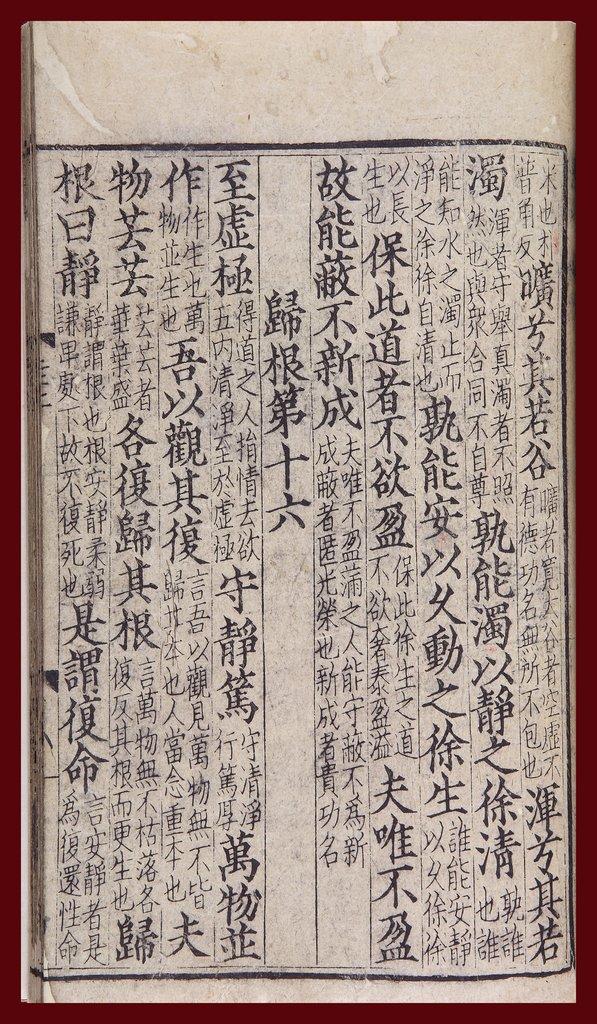 木也朴普角反曠兮其若谷曠者寬大谷者空虛不有德功名無所不包也渾兮其若
濁渾者守舉真濁者不照然也與衆合同不自尊孰能濁以靜之徐清孰誰也誰
能知水之濁止而淨之徐徐自清也孰能安以久動之徐生誰能安靜以久徐徐
以長生也保此道者不欲盈保此徐生之道不欲奢泰盈溢夫唯不盈
故能蔽不新成夫唯不盈滿之人能守蔽不為新成蔽者匿光榮也新成者貴功名
歸根第十六
至虛極得道之人捐情去欲五内清淨至於虛極守靜篤守清淨行篤厚萬物並
作作生也萬物並生也吾以觀其復言吾以觀見萬物無不皆歸其本也人當念重本也夫
物芸芸芸芸者華葉盛各復歸其根言萬物無不枯落各復反其根而更生也歸
根曰靜靜謂根也根安靜柔弱謙卑處下故不復死也是謂復命言安靜者是為復還性命